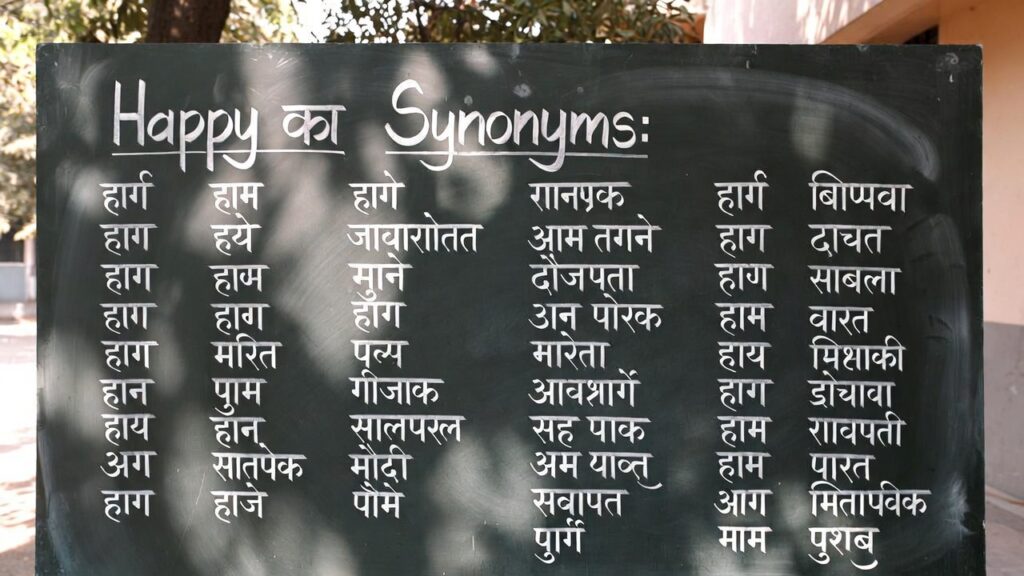 Happy का Synonyms:
हार्ग हाम हागे रानप्रक हार्ग बिप्पवा
हाग हये आम तगने हाग दाचत
हाग हाव्म माुने दौजपता हाग साबला
हाग हाग हाग अन पोरक हाम वारत
हाग मरित पत्य मारेता हाय
हान पाुम गीजाक आवश्रार्गे हाग डोचावा
हाय हान सालपरल सह पाक हाम रावपती
अग सातपेक मौदी हाम पारत
हाग हाजे पौमे सवापत आग मितापवेक
पुार्गे माम पुशब